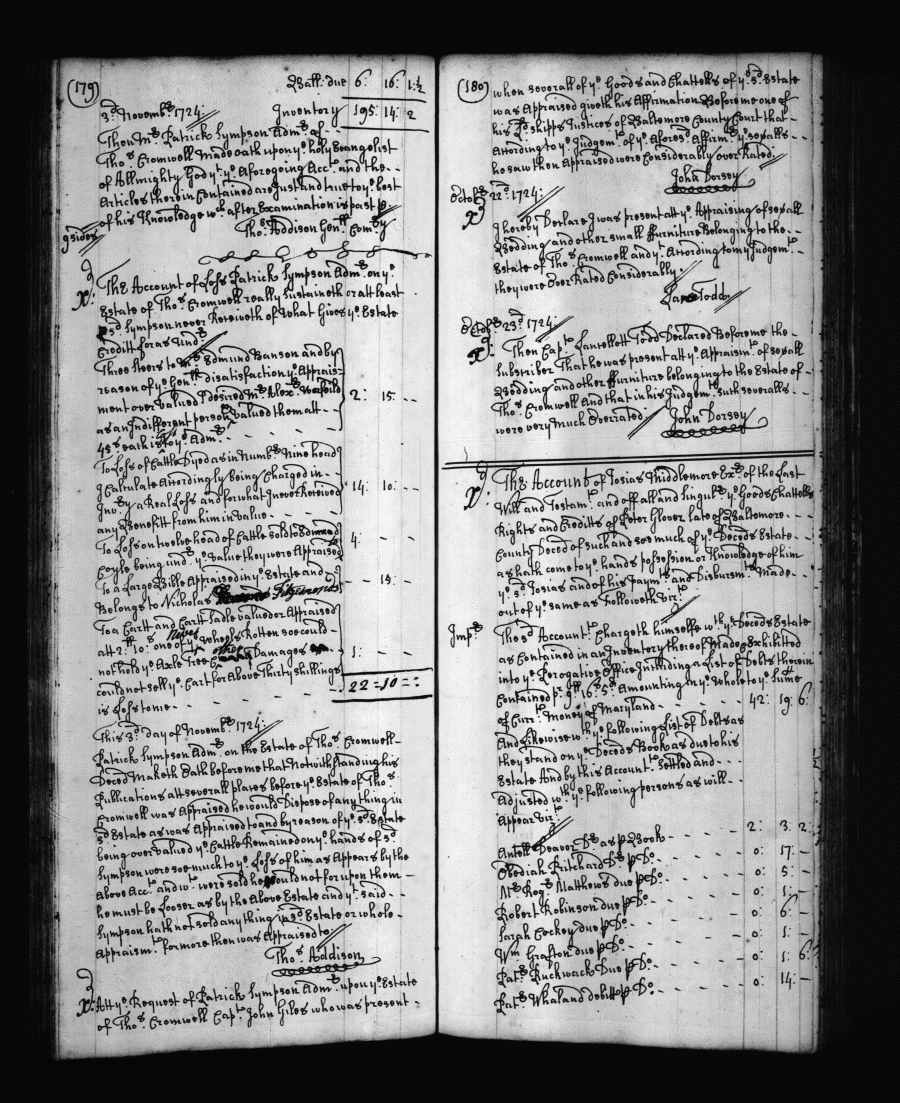 (179)
Ball: due 6: 16: 1½
3d Novembr 1724: Inventory 195: 14: 2
Then Mr Patrick Sympson Admr of
Thos Cromwell Made oath upon ye holy Evangelist
of Allmighty God yt ye Aforegoing Acct and the
Articles therein Contained are Just and true to ye best
of his Knowledge wch after Examination is past p
Thos Addison Genll Comry
9 sides
X: The Account of Loss Patrick Sympson Admr on ye
Estate of Thos Cromwell really Sustaineth or att least
sd Sympson never Receiveth of What Gives ye Estate
Creditt for as Undr
Three Steers to Mr Edmund Benson and by
reason of ye Genlls disatisfaction ye Apprais
ment over Valued I desired Mr Alexr
as an Indifferent person Valued them att 2: 15: -
45s each is to ye Admr
To Loss of Cattle Dyed as in Numbr Nine head
I Calculate Accordingly being Charged in
Invry a Real Loss and for what I never Received 14: 10: -
any Benefitt from him in Value
To Loss on twelve head of Cattle Sold to Edmund
Coyle being undr ye Value they were Appraised 4: - -
To a Large Bible Appraised in ye Estate and
Belongs to Nicholas Fitzsimonds - 15: -
To a Cartt and Cartt Sadle valued or Appraised
att 2ll: 10s: one of ye Wheels Rotten soe could
not hold ye Axle Tree Damages 1: - -
could not sell ye Cart for Above Thirty shillings
is Loss to me 22=10=:
This 3d day of Novembr 1724:
Patrick Sympson Admr on the Estate of Thos Cromwell
Deced Maketh Oath before me that Notwithstanding his
Publications att severall places before ye Estate of Thos
Cromwell was Appraised he would Dispose of any thing in
sd Estate as was Appraised to and by reason of ye sd Estate
being over valued ye Cattle Remained on ye hands of sd
Sympson were soe much to ye Loss of him as Appears by the
Above Acct and wt were sold he could not for upon them
he must be Looser as by the Above Estate and yt said
Sympson hath not sold any thing in sd Estate or whole
Appraismt for more then was Appraised to
Thos Addison
X: Att ye Request of Patrick Sympson Admr upon ye Estate
of Thos Cromwell Capt John Giles who was present
(180)
when severall of ye Goods and Chattells of ye sd Estate
was Appraised giveth his Affirmation Before me one of
his Ldshipps Justices of Baltemore County Court that
According to ye Judgemt of ye Aforesd Affirmt ye sevalls
he saw then Appraised were Considerably over Rated
John Dorsey
Octobr 22d 1724:
X I hereby Declare I was present att ye Appraising of sevall
Bedding and other small ffurniture Belonging to the
Estate of Thos Cromwell and yt According to my Judgemt
they were Over Rated Considerably
Lance Todd
Octobr 23d 1724:
X: Then Capt Lantellott Todd Declared Before me the
Subscriber That he was present att ye Appraismt of sevall
Bedding and other ffurniture belonging to the Estate of
Thos Cromwell And that in his Judgemt such severalls
were very Much Overrated: John Dorsey
X: The Account of Josias Middlemore Exr of the Last
Will and Testamt and off all and Singulr ye Goods Chattells
Rights and Creditts of Peter Glover late of Baltemore
County Deced of such and soe much of ye Deceds Estate
as hath come to ye hands possession or Knowledge of him
ye sd Josias and of his Paymts and Disbursmts Made
out of ye same as Followeth Vizt
Imps The sd Accountt Chargeth himselfe wth ye Deceds Estate
as Contained in an Inventory thereof Made & Exhibitted
into ye Perogative Office Including a List of Debts therein
Contained Amounting in ye whole to ye Sume
of Currt Money of Maryland 42: 19: 6
And Likewise wth ye following List of Debts as
they stand on ye Deceds Book as due to his
Estate And by this Accountt Settled and
Adjusted wth ye following persons as will
Appear Vizt
Antill Deaver Dr as p Book 2: 3: 2
Obediah Pritchard Dr p Do 0: 17: -
Mr Rogr Matthews due p Do 0: 5: -
Robert Robinson due p Do 0: 1: -
Sarah Cockey due p Do 0: 6: -
Wm Grafton due p Do 0: 1: -
Patr Ruchwack Due p Do 0: 1: 6
Patr Whaland debitt p Do 0: 14: -